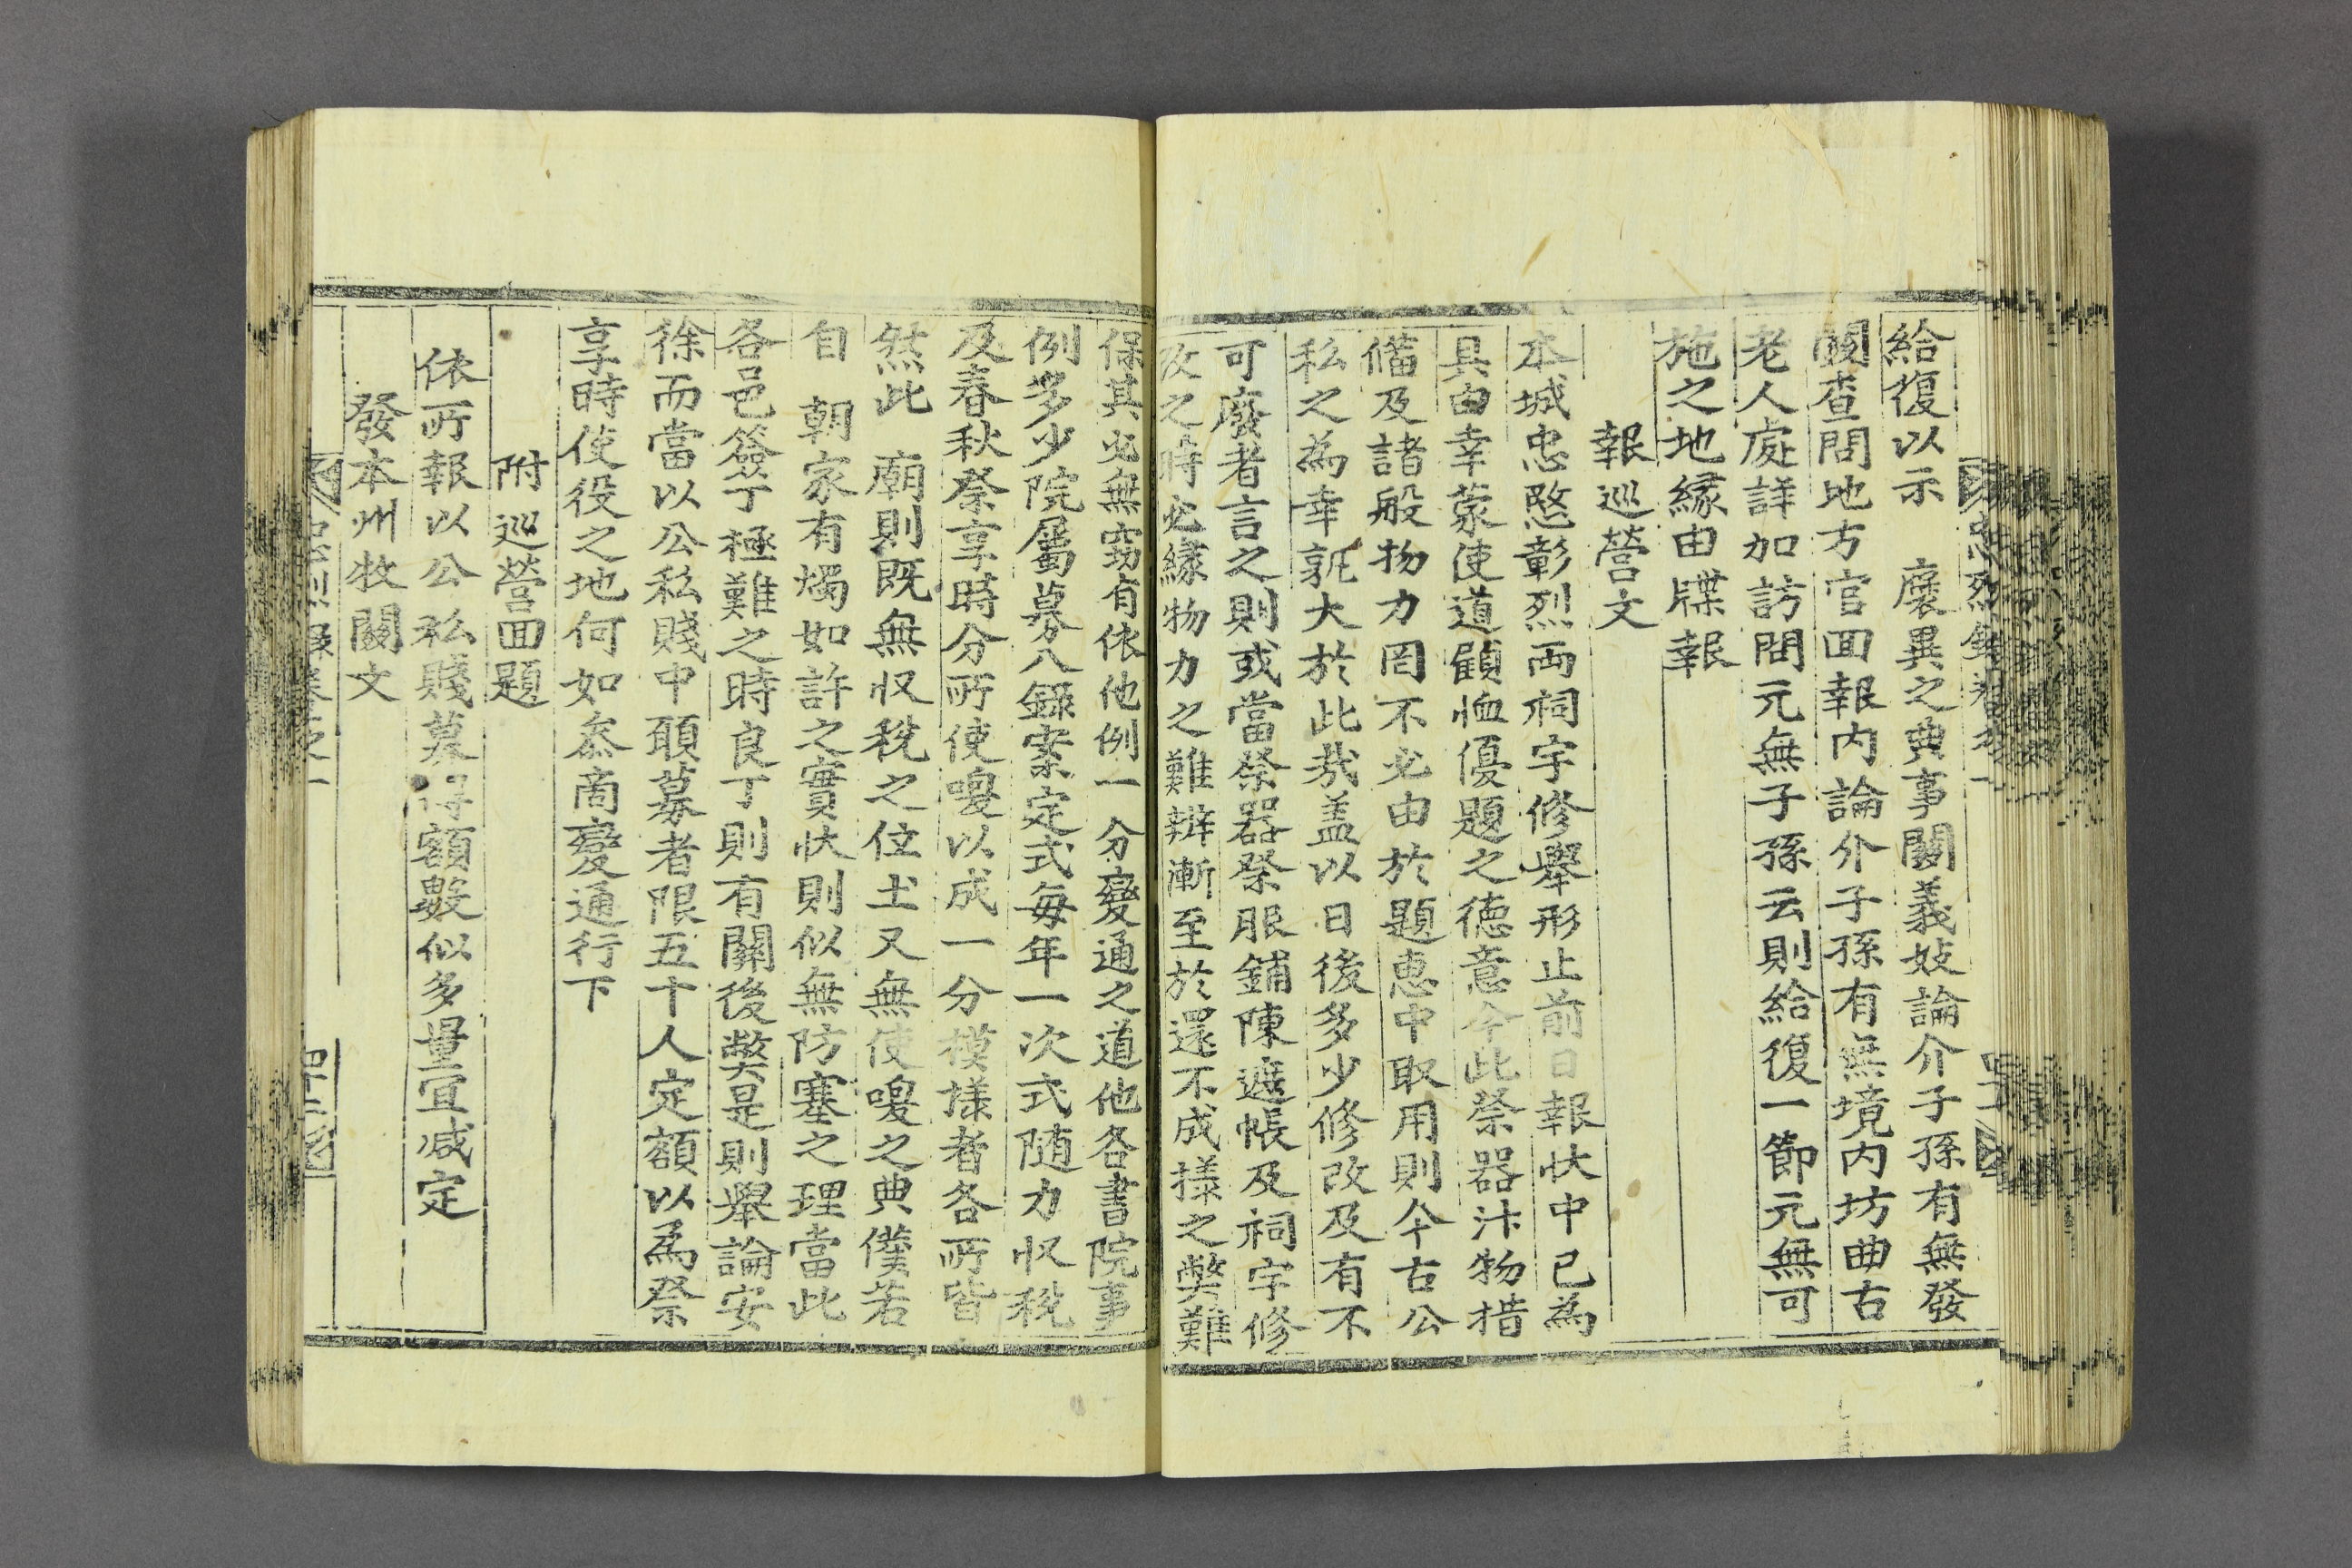 給復以示 襃異之典事關義妓論介子孫有無發
關査問地方官回報内論介子孫有無境内坊曲古
老人處詳加訪問元無子孫云則給復一節元無可
施之地緣由牒報
報巡營文
本城忠愍彰烈両祠宇修舉形止前日報狀中已為
具由幸蒙使道顧恤優題之德意今此祭器汴物措
備及諸般物力罔不必由於題惠中取用則今古公
私之為幸孰大於此哉盖以日後多少修改及有不
可廢者言之則或當祭器祭服鋪陳遮帳及祠宇修
改之時必緣物力之難辦漸至於還不成㨾之弊難
保其必無窃有依他例一分變通之道他各書院事
例多少院屬募入錄案定式每年一次式随力収稅
及春秋祭享時分所使喚以成一分模㨾者各所皆
然此 廟則既無収稅之位土又無使喚之典僕若
自 朝家有燭如許之實狀則似無防塞之理當此
各邑簽丁極難之時良丁則有關後弊是則舉論安
徐而當以公私賤中願募者限五十人定額以爲祭
享時使役之地何如叅商變通行下
附巡營回題
依所報以公私賤募得額數似多量宜减定
發本州牧關文